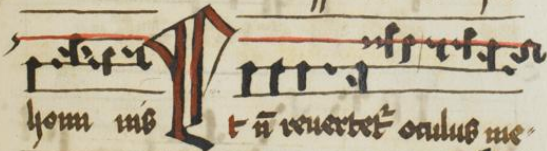 homi nis Et n̄ reuertet᷑ oculus me-